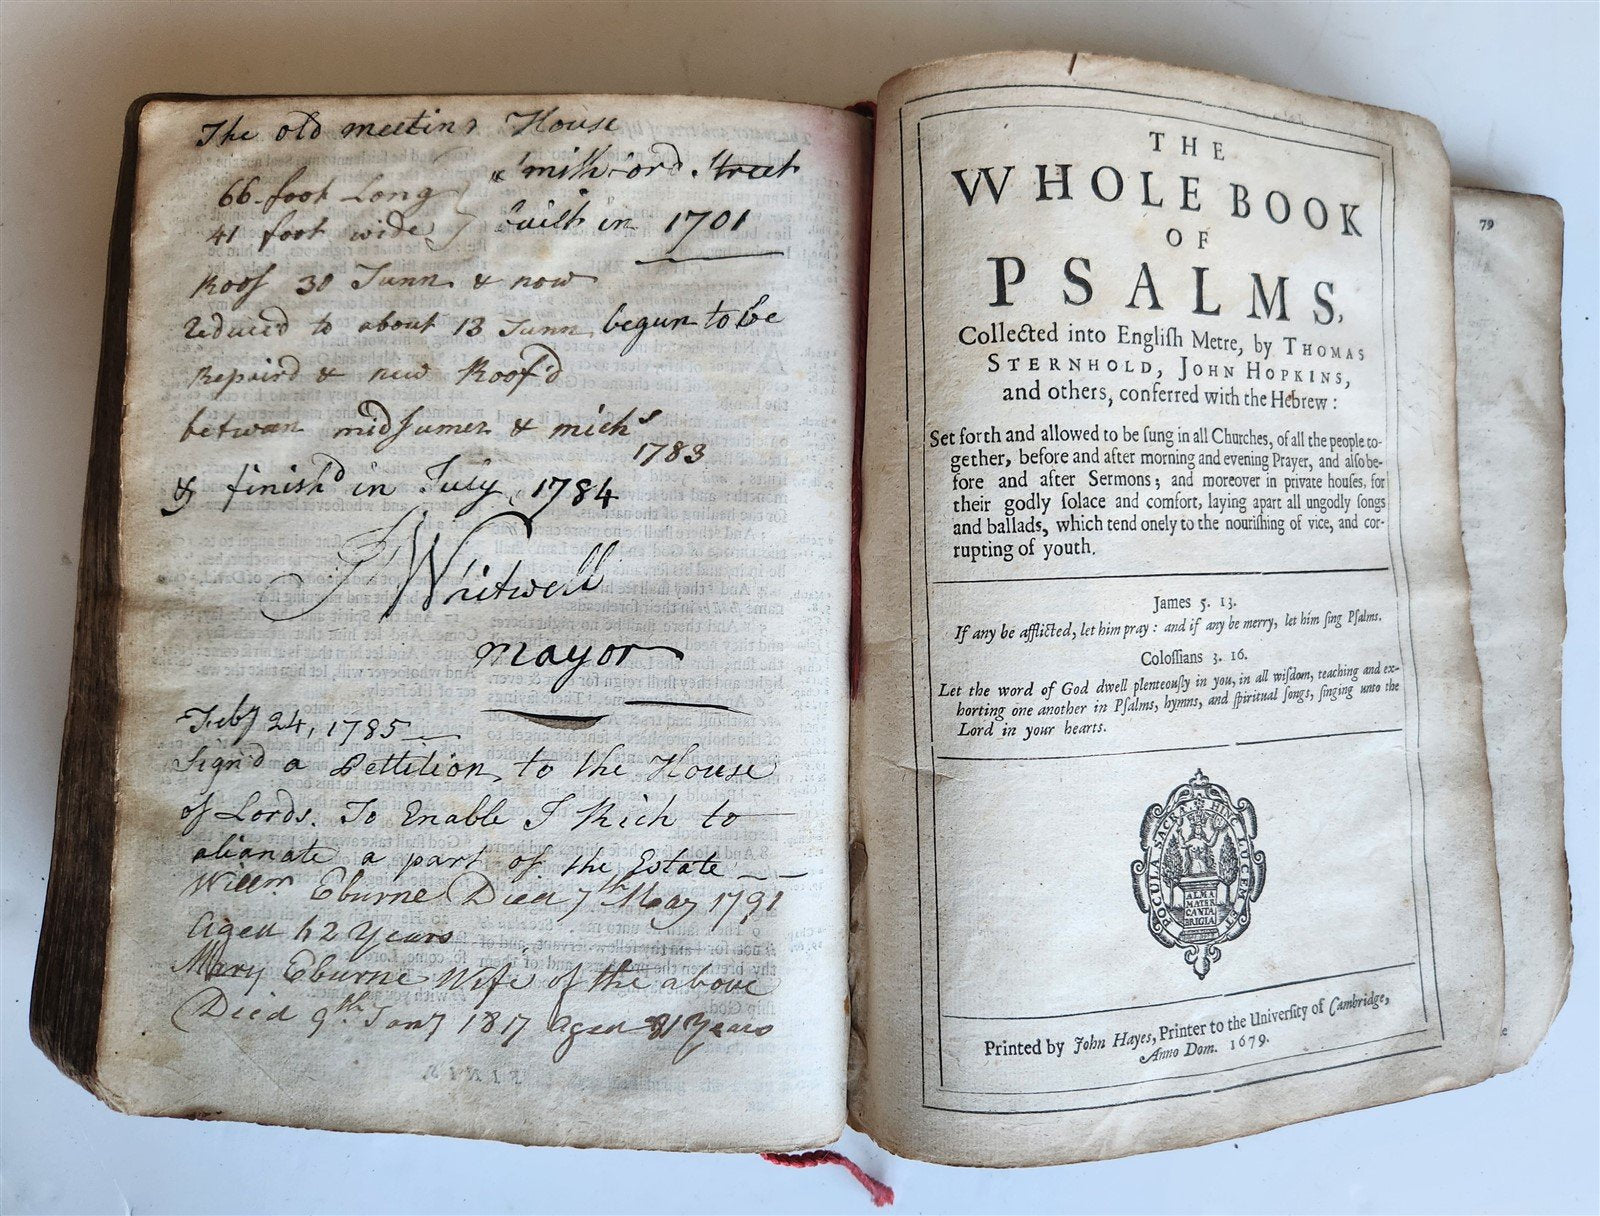 The old meeting House
66 foot Long
41 foot wide
in milkford Street
built in 1701
Roof 30 Tunn & now
reduced to about 13 Tunn, begun to be
Repair'd & new Roof'd
between midsumer & michs
1783
& finish'd in July, 1784
Whitwell
mayor
Feby 24, 1785
Sign'd a Pettition, to the House
of Lords. To Enable J Rich to
alianate a part of the Estate
Willm Eburne Died 7th May 1791
Aged 62 Years
Mary Eburne Wife of the above
Died 9th Jany 1817 aged 81 Years
THE
WHOLE BOOK
OF
PSALMS,
Collected into Engliſh Metre, by THOMAS
STERNHOLD, JOHN HOPKINS,
and others, conferred with the Hebrew:
Set forth and allowed to be ſung in all Churches, of all the people to-
gether, before and after morning and evening Prayer, and alſo be-
fore and after Sermons; and moreover in private houſes, for
their godly ſolace and comfort, laying apart all ungodly ſongs
and ballads, which tend onely to the nouriſhing of vice, and cor-
rupting of youth.
James 5. 13.
If any be afflicted, let him pray: and if any be merry, let him ſing Pſalms.
Coloſſians 3. 16.
Let the word of God dwell plenteouſly in you, in all wiſdom, teaching and ex-
horting one another in Pſalms, hymns, and ſpiritual ſongs, ſinging unto the
Lord in your hearts.
HINC LUCEM ET POCULA SACRA
ALMA
MATER
CANTA
BRIGIA
Printed by John Hayes, Printer to the Univerſity of Cambridge,
Anno Dom. 1679.
79